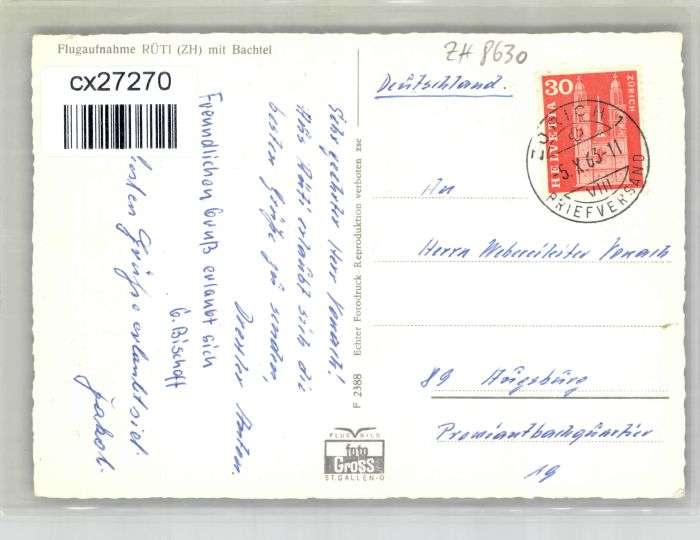 Flugaufnahme RÜTI (ZH) mit Bachtel
cx27270
ZH 8630
Deutschland.
HELVETIA 30 ZÜRICH
ZÜRICH 1
5.X.63-11
VIII
BRIEFVERSAND
Sehr geehrter Herr Vonach!
Aus Rüti erlaubt sich die
besten Grüße zu senden,
Drexler Anton.
Freundlichen Gruß erlaubt sich
G. Bischoff
besten Grüße erlaubt sich
Jakob.
F 2388 Echter Fotodruck Reproduktion verboten
FLUGBILD
foto
Gross
ST. GALLEN-O
An
Herrn Webereileiter Vonach
89 Augsburg
Proviantbachquartier
19